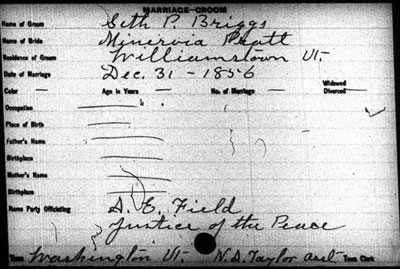 MARRIAGE-GROOM
Name of Groom Seth P. Briggs
Name of Bride Minervia Pratt
Residence of Groom Williamstown Vt.
Date of Marriage Dec. 31 - 1856
Color — Age in Years — No. of Marriage — Widowed Divorced —
Occupation
Place of Birth
Father's Name
Birthplace
Mother's Name
Birthplace
Name Party Officiating A. E. Field
Justice of the Peace
Town Washington Vt. N.D. Taylor asst Town Clerk